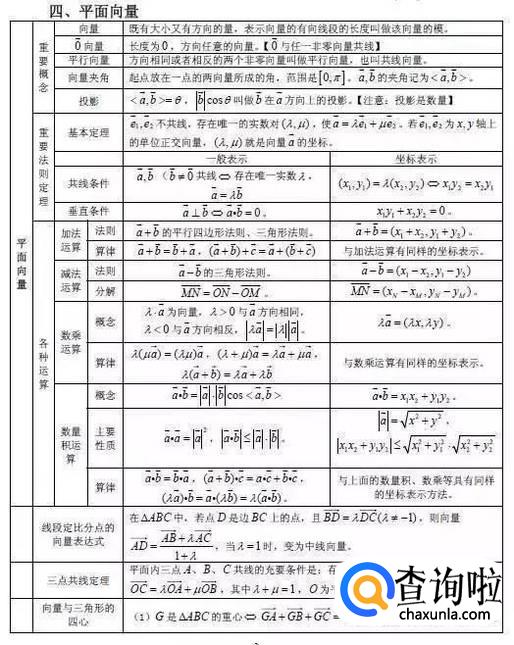 四、平面向量
平面向量
重要概念
向量 既有大小又有方向的量，表示向量的有向线段的长度叫做该向量的模。
0⃗向量 长度为0，方向任意的向量。【0⃗与任一非零向量共线】
平行向量 方向相同或者相反的两个非零向量叫做平行向量，也叫共线向量。
向量夹角 起点放在一点的两向量所成的角，范围是[0,π]。a⃗,b⃗的夹角记为<a⃗,b⃗>。
投影 <a⃗,b⃗>=θ，|b⃗|cosθ叫做b⃗在a⃗方向上的投影。【注意：投影是数量】
重要法则定理
基本定理 e⃗₁,e⃗₂不共线，存在唯一的实数对(λ,μ)，使a⃗=λe⃗₁+μe⃗₂。若e⃗₁,e⃗₂为x,y轴上
的单位正交向量，(λ,μ)就是向量a⃗的坐标。
一般表示 坐标表示
共线条件 a⃗,b⃗（b⃗≠0⃗共线⇔存在唯一实数λ，
a⃗=λb⃗ (x₁,y₁)=λ(x₂,y₂)⇔x₁y₂=x₂y₁
垂直条件 a⃗⊥b⃗⇔a⃗•b⃗=0。 x₁y₁+x₂y₂=0。
各种运算
加法运算 法则 a⃗+b⃗的平行四边形法则、三角形法则。 a⃗+b⃗=(x₁+x₂,y₁+y₂)。
算律 a⃗+b⃗=b⃗+a⃗，(a⃗+b⃗)+c⃗=a⃗+(b⃗+c⃗) 与加法运算有同样的坐标表示。
减法运算 法则 a⃗−b⃗的三角形法则。 a⃗−b⃗=(x₁−x₂,y₁−y₂)
分解 MN⃗=ON⃗−OM⃗。 MN⃗=(x_N−x_M,y_N−y_M)。
数乘运算 概念 λ·a⃗为向量，λ>0与a⃗方向相同，
λ<0与a⃗方向相反，|λa⃗|=|λ||a⃗|。 λa⃗=(λx,λy)。
算律 λ(μa⃗)=(λμ)a⃗，(λ+μ)a⃗=λa⃗+μa⃗，
λ(a⃗+b⃗)=λa⃗+λb⃗ 与数乘运算有同样的坐标表示。
数量积运算 概念 a⃗•b⃗=|a⃗|·|b⃗|cos<a⃗,b⃗> a⃗•b⃗=x₁x₂+y₁y₂。
主要性质 a⃗•a⃗=|a⃗|²，|a⃗•b⃗|≤|a⃗|·|b⃗|。 |a⃗|=√(x²+y²)，
|x₁x₂+y₁y₂|≤√(x₁²+y₁²)·√(x₂²+y₂²)
算律 a⃗•b⃗=b⃗•a⃗，(a⃗+b⃗)•c⃗=a⃗•c⃗+b⃗•c⃗，
(λa⃗)•b⃗=a⃗•(λb⃗)=λ(a⃗•b⃗)。 与上面的数量积、数乘等具有同样的坐标表示方法。
线段定比分点的向量表达式 在△ABC中，若点D是边BC上的点，且BD⃗=λDC⃗(λ≠−1)，则向量
AD⃗=(AB⃗+λAC⃗)/(1+λ)，当λ=1时，变为中线向量。
三点共线定理 平面内三点A、B、C共线的充要条件是：存
OC⃗=λOA⃗+μOB⃗，其中λ+μ=1，O为
向量与三角形的四心 （1）G是△ABC的重心⇔GA⃗+GB⃗+GC⃗=
查询啦
chaxunla.com